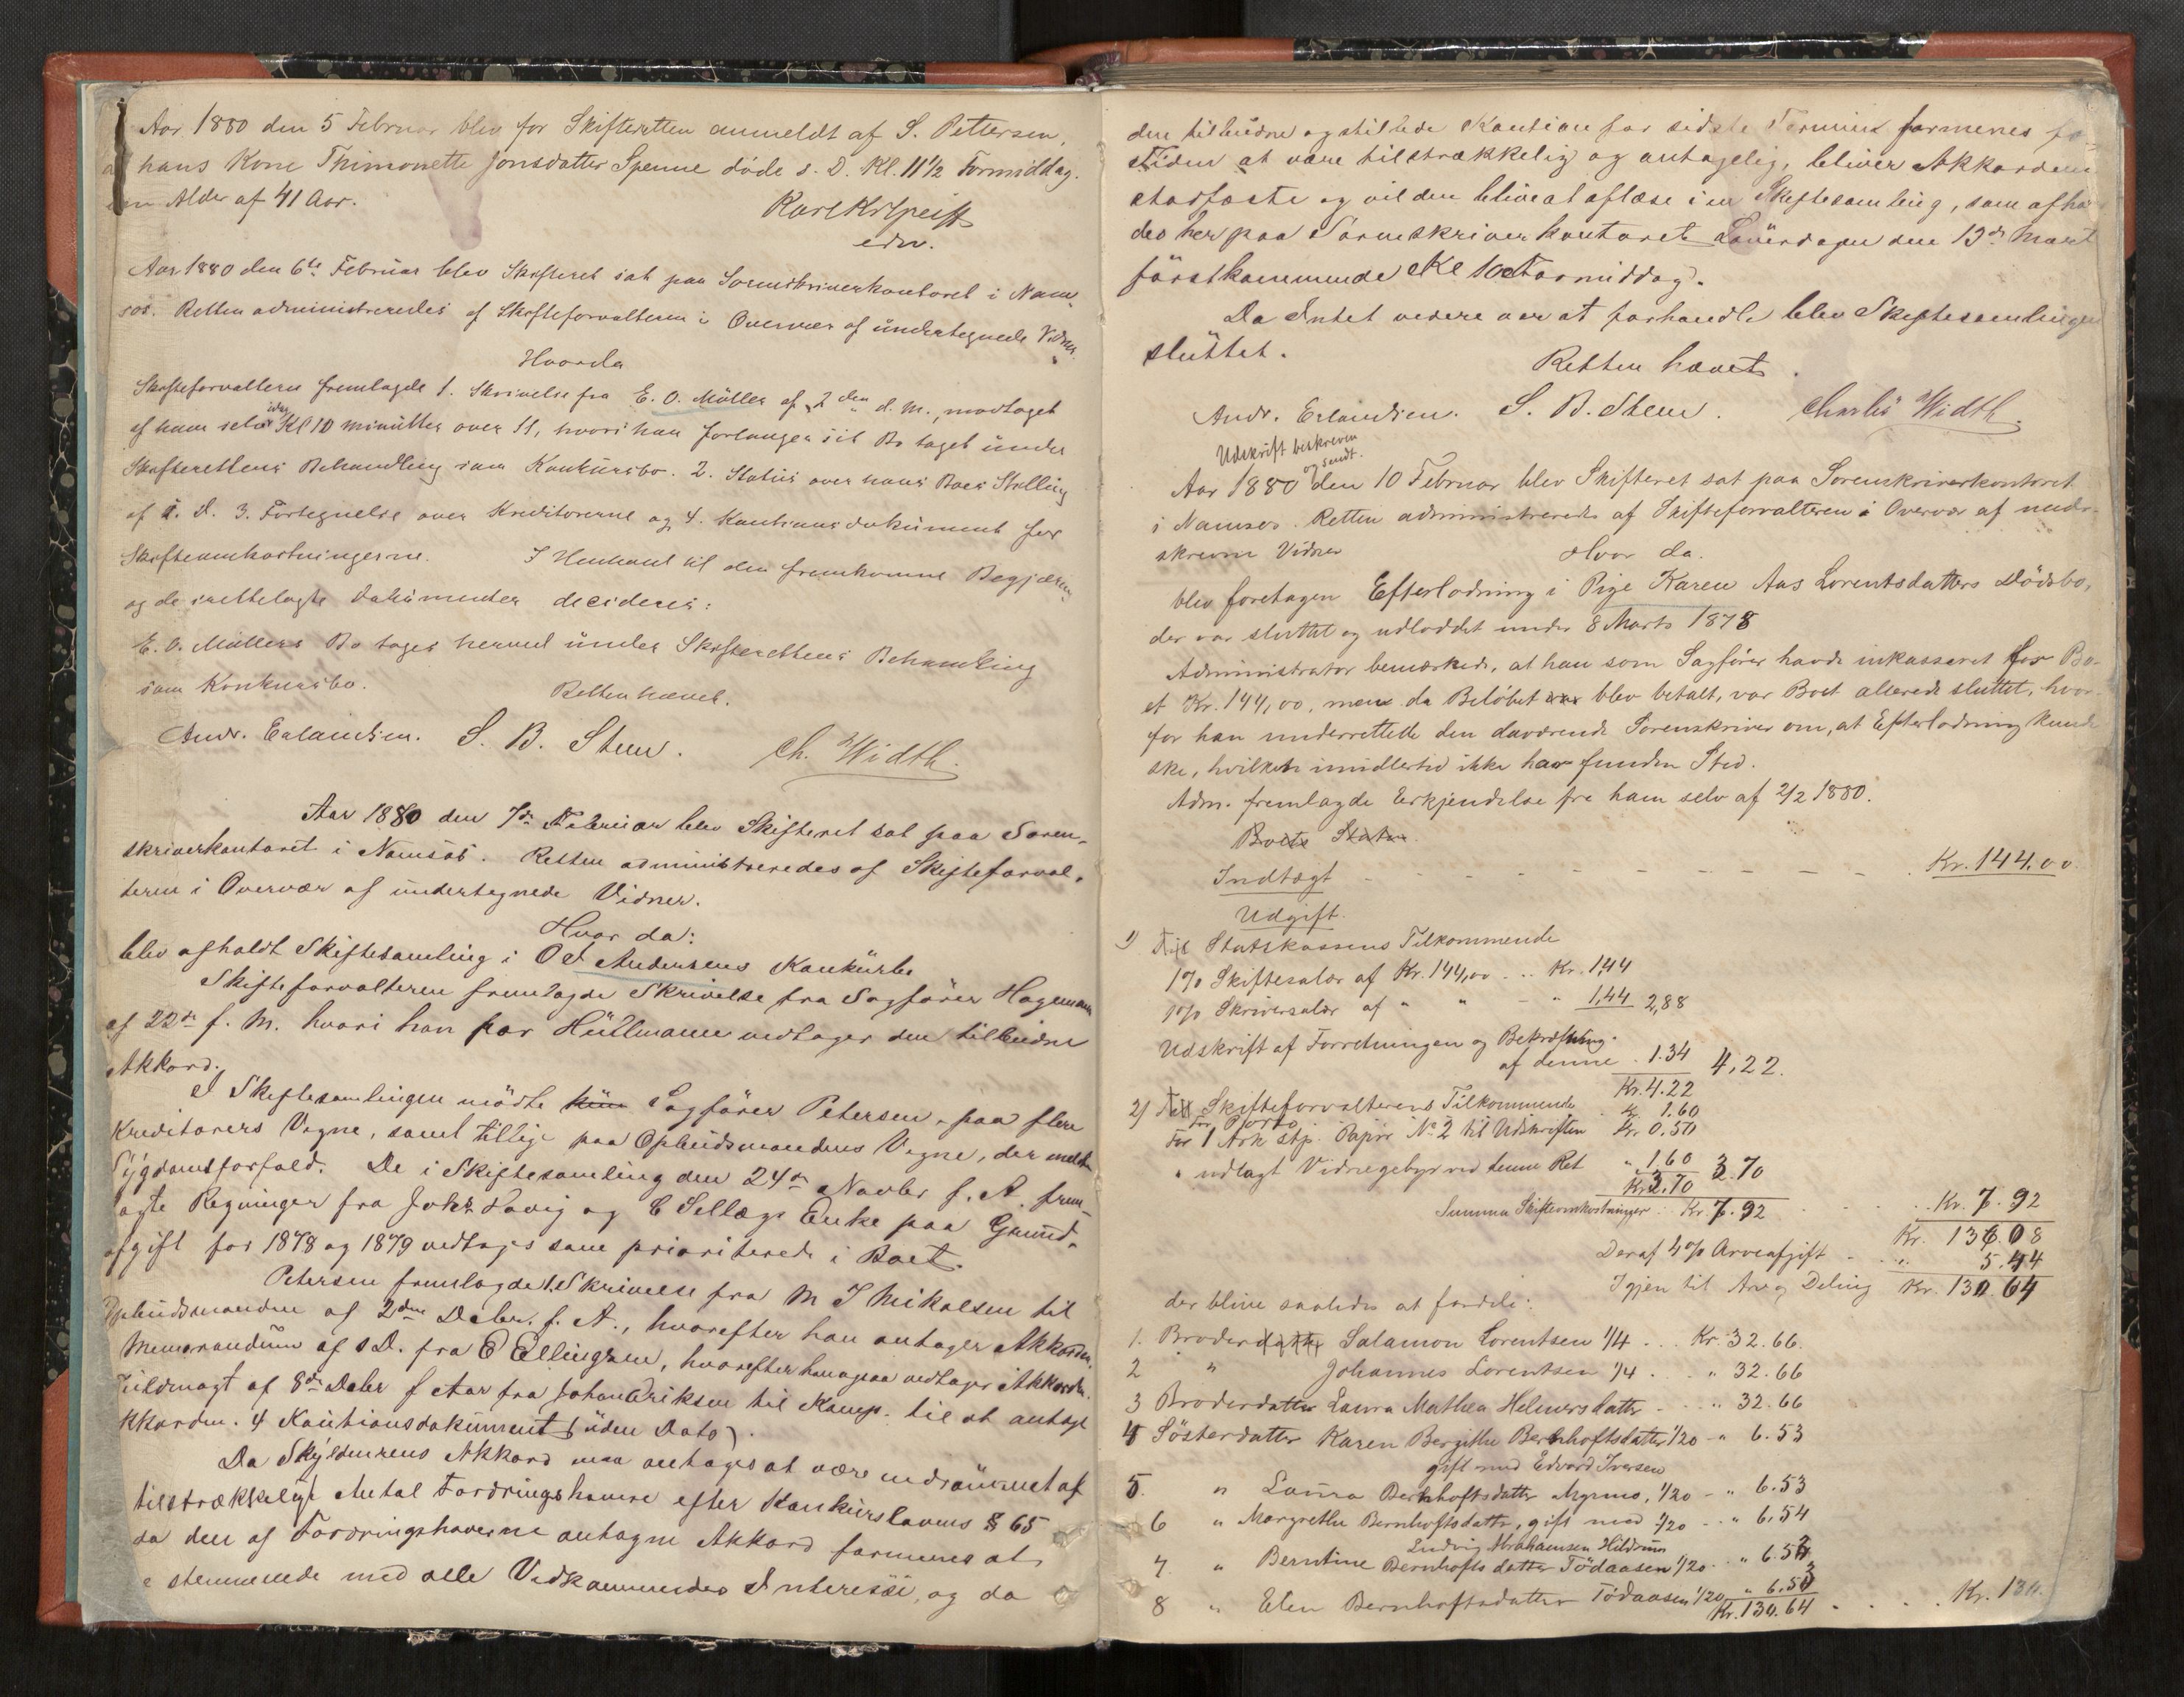 Aar 1880 den 5 Februar blev for Skifteretten anmeldt af S. Pettersen,
hans Kone Thimonette Jonsdatter Spenne døde s. D. Kl. 11½ Formiddag.
en Alder af 41 Aar.
edv.
Aar 1880 den 6te Februar blev Skifteret sat paa Sorenskriverkontoret i Nam-
sos. Retten administreredes af Skifteforvalteren i Overvær af undertegnede Vidner.
Hvorda
Skifteforvalteren fremlagde 1. Skrivelse fra E. O. Müller af 2den d. M., modtaget
af ham selv idag Kl 10 minutter over 11, hvori han forlanger sit Bo taget under
Skifterettens Behandling som Konkursbo. 2. Status over hans Boes Stilling
af s. D. 3. Fortegnelse over Kreditorerne og 4. Kautionsdokument for
Skifteomkostningerne. I Henhold til den fremkomne Begjæring
og de irettelagte Dokumenter decideres:
E. O. Müllers Bo tages herved under Skifterettens Behandling
som Konkursbo. Retten hævet.
Andr. Erlandsen. S. B. Steen. Ch. Width.
Aar 1880 den 7de Februar blev Skifteret sat paa Soren-
skriverkontoret i Namsos. Retten administreredes af Skifteforval-
teren i Overvær af undertegnede Vidner.
Hvor da:
blev afholdt Skiftesamling i O J Andersens Konkursbo
Skifteforvalteren fremlagde Skrivelse fra Sagfører Hagemann
af 22de f. M. hvori han for Hüllmann vedtager den tilbudne
Akkord.
I Skiftesamlingen mødte kun Sagfører Petersen, paa flere
Kreditorers Vegne, samt tillige paa Opbudsmandens Vegne, der meldte
Sygdomsforfald. De i Skiftesamling den 24de Novbr f. A. frem-
agte Regninger fra Johs Havig og E Sellægs Enke paa Grund-
afgift for 1878 og 1879 vedtages som prioriterede i Boet.
Petersen fremlagde 1. Skrivelse fra M J Mikalsen til
Opbudsmanden af 2den Decbr. f. A., hvorefter han antager Akkorden.
Memorandum af s D. fra E Ellingsen, hvorefter han ogsaa vedtager Akkorden.
Fuldmagt af 8de Decbr f Aar fra Johan Eriksen til Kamp. til at antage
kkorden. 4 Kautionsdokument (uden Dato).
Da Skyldnerens Akkord maa antages at være indrømmet af
tilstrækkeligt Antal Fordringshavere efter Konkurslovens § 65
da den af Fordringshaverne antagne Akkord formenes at
stemmende med alle Vedkommendes Interesse, og da
den tilbudne og stillede Kaution for sidste Termin formenes for
Tiden at være tilstrækkelig og antagelig, bliver Akkorden
stadfæste og vil den blive at aflæse i en Skiftesamling, som afhol
des her paa Sorenskriverkontoret Løverdagen den 13de Marts
førstkommende Kl 10 Formiddag.
Da Intet videre var at forhandle blev Skiftesamlingen
sluttet.
Retten hævet.
Andr. Erlandsen. S. B. Steen. Charles Width.
Udskrift beskreven
og sendt.
Aar 1880 den 10 Februar blev Skifteret sat paa Sorenskriverkontoret
i Namsos. Retten administreredes af Skifteforvalteren i Overvær af under-
skrevne Vidner Hvor da.
blev foretagen Efterlodning i Pige Karen Aas Lorentsdatters Dødsbo,
der var sluttet og udloddet under 8 Marts 1878
Administrator bemærkede, at han som Sagfører havde inkasseret for Bo-
et Kr. 144,00, men da Beløbet var blev betalt, var Boet allerede sluttet, hvor-
for han underrettede den daværende Sorenskriver om, at Efterlodning kunde
ske, hvilket imidlertid ikke har funden Sted.
Adm. fremlagde Erkjendelse fra ham selv af 2/2 1880.
Boets Status.
Indtægt - - - - - - - - - - Kr. 144.00.
Udgift.
1) Statskassens Tilkommende
1% Skiftesalær af Kr. 144,00 ... Kr. 1,44
1% Skriversalær af " " - " 1,44 2,88
Udskrift af Forretningen og Bekræftning
af denne . 1.34 4,22.
Kr. 4.22
2) Skifteforvalterens Tilkommende
For Porto Kr. 1.60
For 1 Ark stp. Papir No 2 til Udskriften Kr. 0.50
" udlagt Vidnegebyr ved denne Ret " 1,60 3.70
Kr. 3.70
Summa Skifteomkostninger: Kr. 7.92 . . . . Kr. 7.92
Kr. 136.08
Deraf 4% Arveafgift - . " 5.44
Igjen til Arv og Deling Kr. 130.64
der blive saaledes at fordele:
1. Broder Salamon Lorentsen 1/4 ... Kr. 32.66.
2 " Johannes Lorentsen 1/4 . . " 32.66
3 Broderdatter Laura Mathea Helmersdatter - . . " 32.66
4 Søsterdatter Karen Bergithe Bernhoftsdatter 1/20 - " 6.53
gift med Edvard Iversen
5. " Laura Bernhoftsdatter Myrmo, 1/20 - " 6.53
6 " Margrethe Bernhoftsdatter, gift med 1/20 - . " 6.54
Ludvig Abrahamsen Hildrum
7. " Berntine Bernhoftsdatter Tødaasen 1/20 . . " 6.53
8 " Elen Bernhoftsdatter Tødaasen 1/20 " 6.53
Kr. 130.64 . . . . Kr. 130.